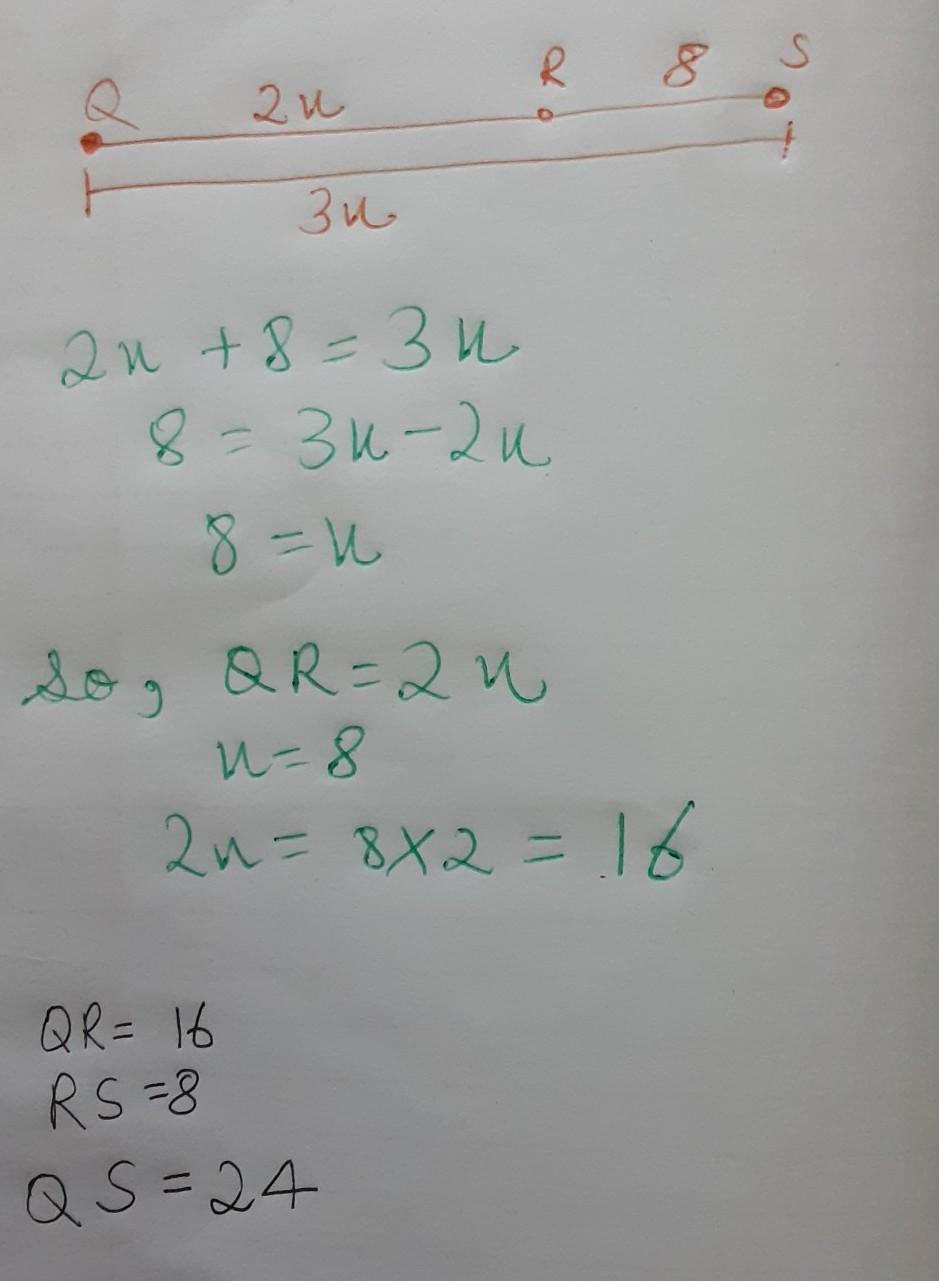 Q 2x R 8 S
3x
2x + 8 = 3x
8 = 3x - 2x
8 = x
So, QR = 2x
x = 8
2x = 8 × 2 = 16
QR = 16
RS = 8
QS = 24